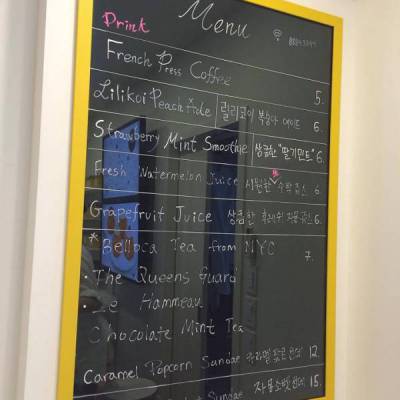 Drink
Menu
French Press Coffee 5.
Lilikoi Peach Ade 릴리코이 복숭아 에이드 6.
Strawberry Mint Smoothie 상큼한 "딸기민트" 6.
Fresh Watermelon Juice 시원한 수박 쥬스 6.
Grapefruit Juice 상큼한 자몽 쥬스 6.
*Belloca Tea from NYC 7.
· The Queens Guard
· Le Hammeau
Chocolate Mint Tea
Caramel Popcorn Sundae 카라멜 팝콘 썬데 12.
Sundae 15.